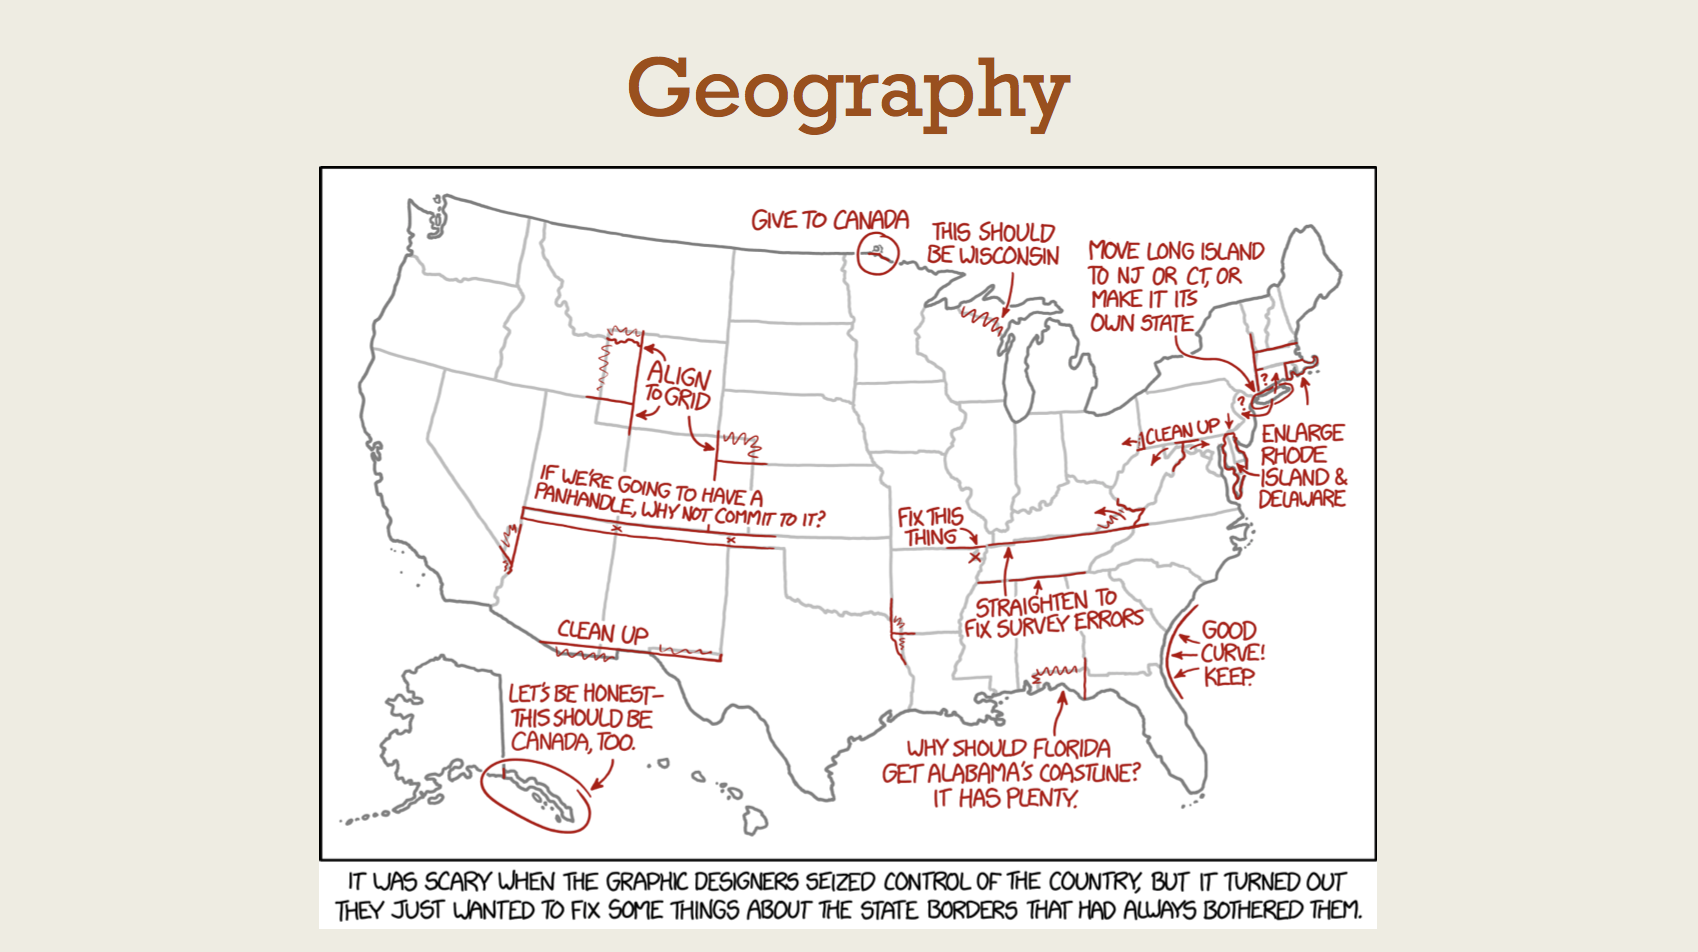 Geography
GIVE TO CANADA
THIS SHOULD
BE WISCONSIN
MOVE LONG ISLAND
TO NJ OR CT, OR
MAKE IT ITS
OWN STATE
ALIGN
TO GRID
?
?
CLEAN UP
ENLARGE
RHODE
ISLAND &
DELAWARE
IF WE'RE GOING TO HAVE A
PANHANDLE, WHY NOT COMMIT TO IT?
FIX THIS
THING
STRAIGHTEN TO
FIX SURVEY ERRORS
CLEAN UP
GOOD
CURVE!
KEEP.
LET'S BE HONEST—
THIS SHOULD BE
CANADA, TOO.
WHY SHOULD FLORIDA
GET ALABAMA'S COASTLINE?
IT HAS PLENTY.
IT WAS SCARY WHEN THE GRAPHIC DESIGNERS SEIZED CONTROL OF THE COUNTRY, BUT IT TURNED OUT
THEY JUST WANTED TO FIX SOME THINGS ABOUT THE STATE BORDERS THAT HAD ALWAYS BOTHERED THEM.